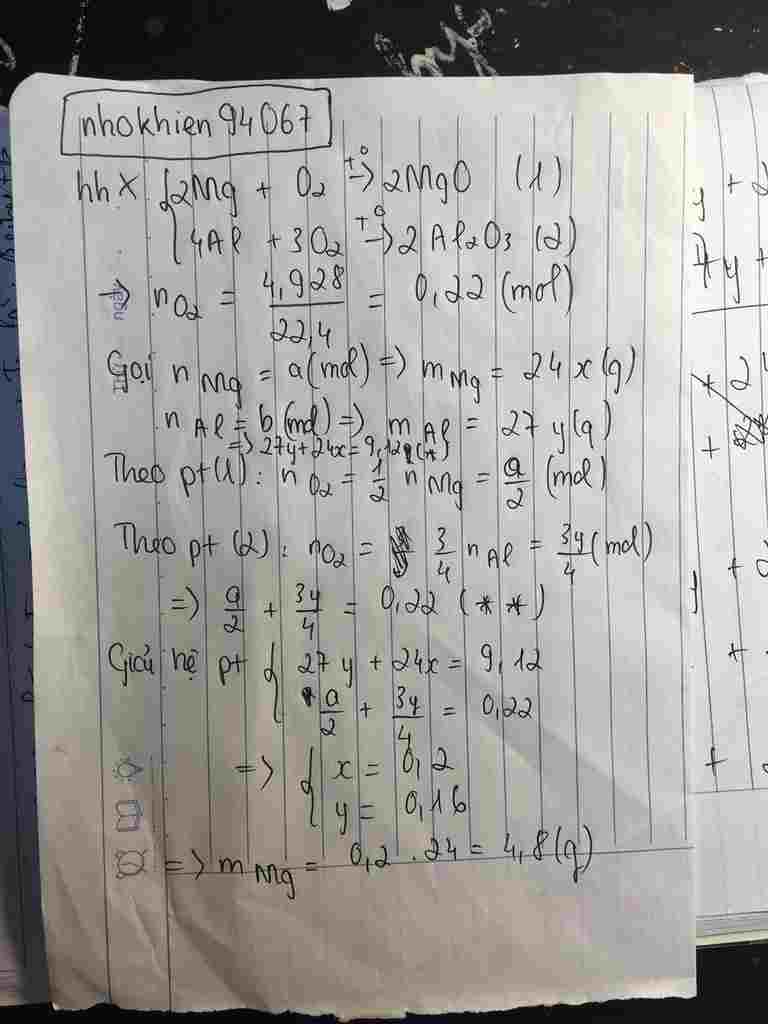 nhokhien94067
hh X { 2Mg + O₂ →t° 2MgO (1)
4Al + 3O₂ →t° 2Al₂O₃ (2)
→ nO₂ = 4,928/22,4 = 0,22 (mol)
Gọi nMg = a(mol) => mMg = 24x(g)
nAl = b(mol) => mAl = 27y(g)
=> 27y + 24x = 9,12g(*)
Theo pt(1): nO₂ = 1/2 nMg = a/2 (mol)
Theo pt (2): nO₂ = 3/4 nAl = 3y/4 (mol)
=> a/2 + 3y/4 = 0,22 (**)
Giải hệ pt { 27y + 24x = 9,12
a/2 + 3y/4 = 0,22
=> { x = 0,2
y = 0,16
=> mMg = 0,2 . 24 = 4,8(g)